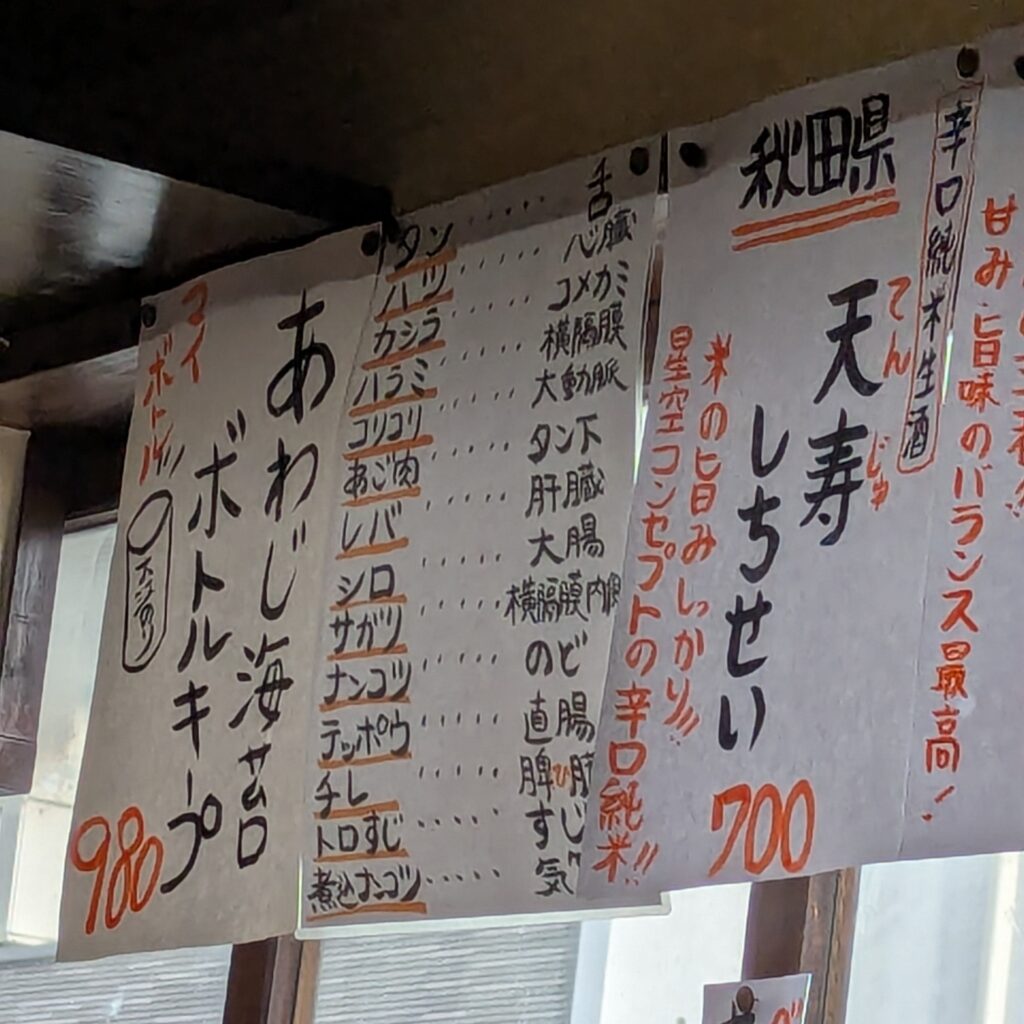 甘み・旨味のバランス最高!
辛口純米生酒
秋田県
天寿
てん じゅ
しちせい
米の旨みしっかり!!
星空コンセプトの辛口純米!!
700
タン ‥‥‥ 舌
ハツ ‥‥‥ 心臓
カシラ ‥‥‥ コメカミ
ハラミ ‥‥‥ 横隔膜
コリコリ ‥‥‥ 大動脈
あご肉 ‥‥‥ タン下
レバ ‥‥‥ 肝臓
シロ ‥‥‥ 大腸
サガリ ‥‥‥ 横隔膜内側
ナンコツ ‥‥‥ のど
テッポウ ‥‥‥ 直腸
チレ ‥‥‥ 脾ひ臓
トロすじ ‥‥‥ すじ
煮込ナンコツ ‥‥‥ 気
あわじ海サムロ
ボトルキープ
マイ
ボトル!!
980